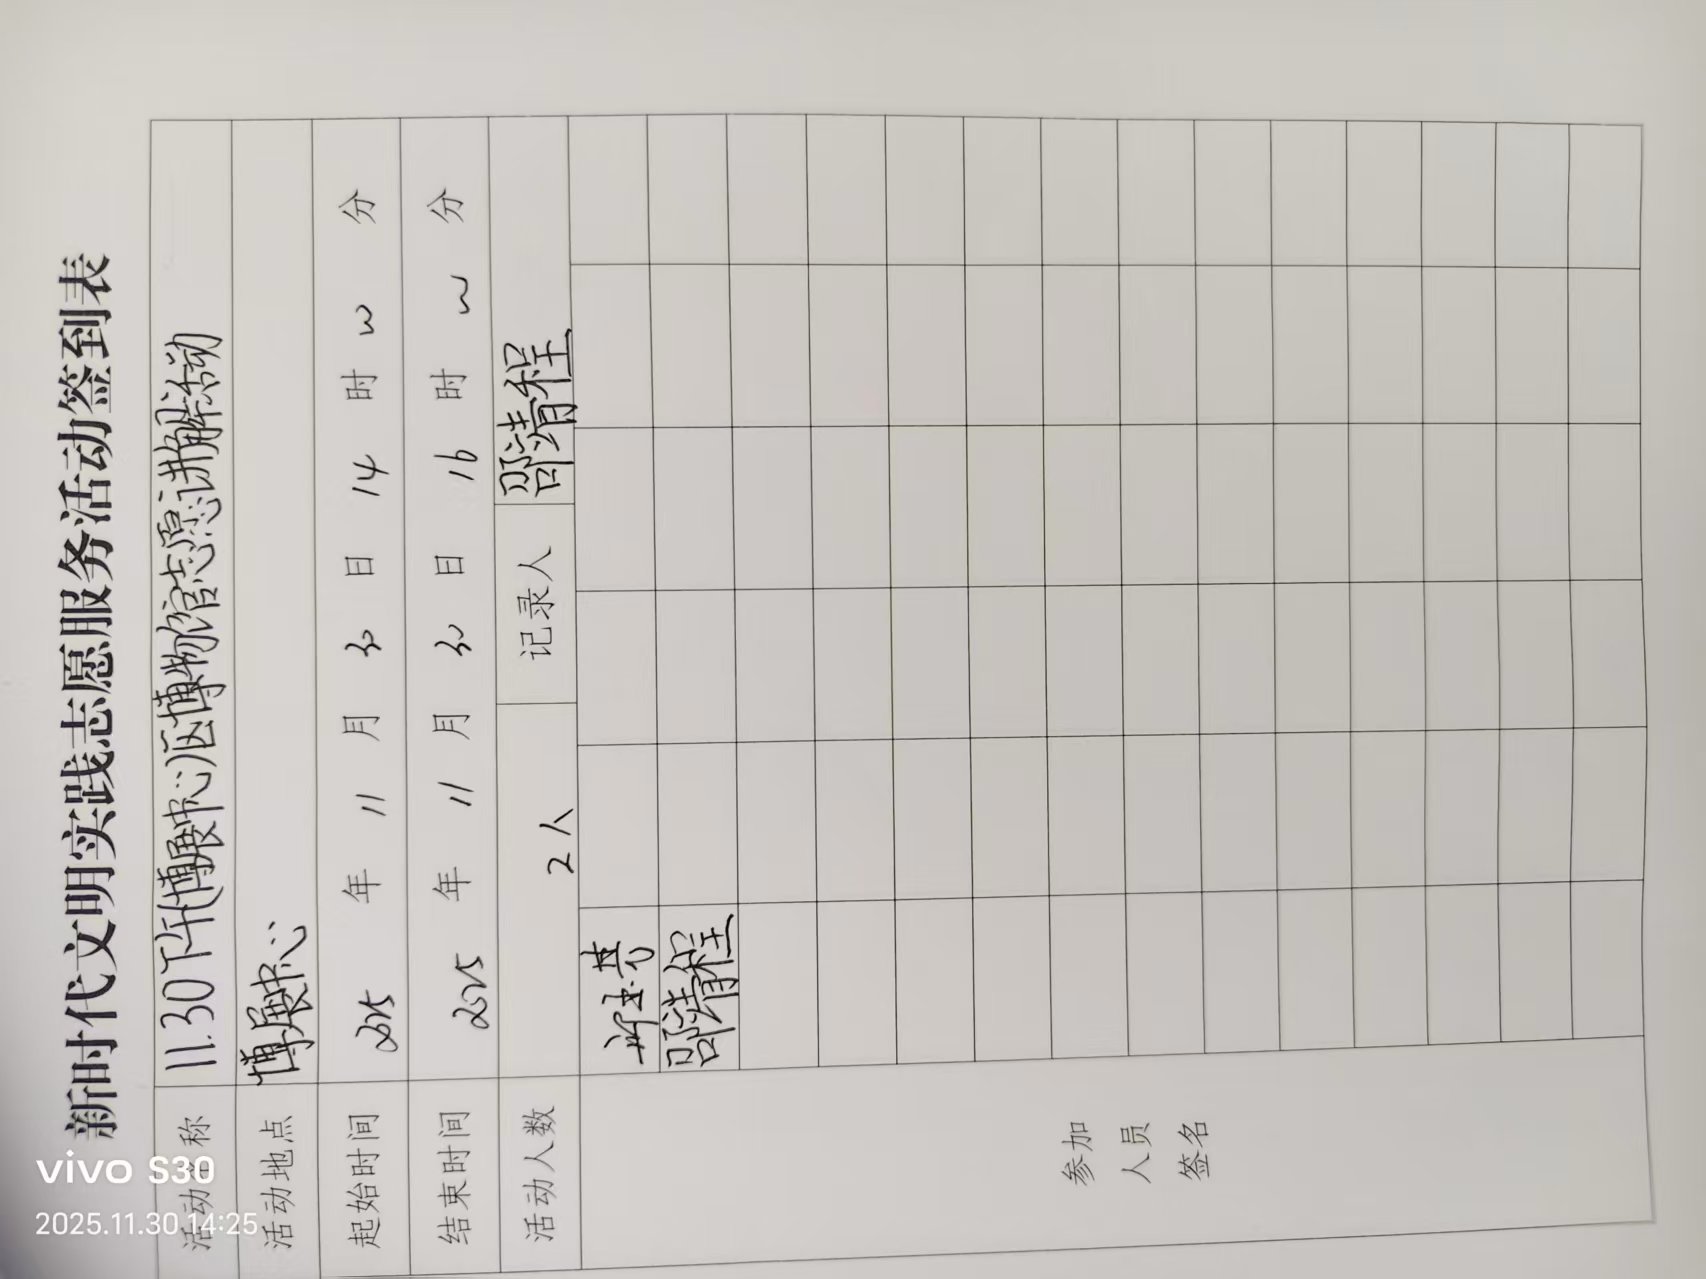 新时代文明实践志愿服务活动签到表
活动名称 11.30下午(博展中心)区博物馆志愿讲解活动
活动地点 博展中心
起始时间 2025 年 11 月 30 日 14 时 00 分
结束时间 2025 年 11 月 30 日 16 时 00 分
活动人数 2人 记录人 邵靖程
参加
人员
签名
邵靖程
vivo S30
2025.11.30 14:25